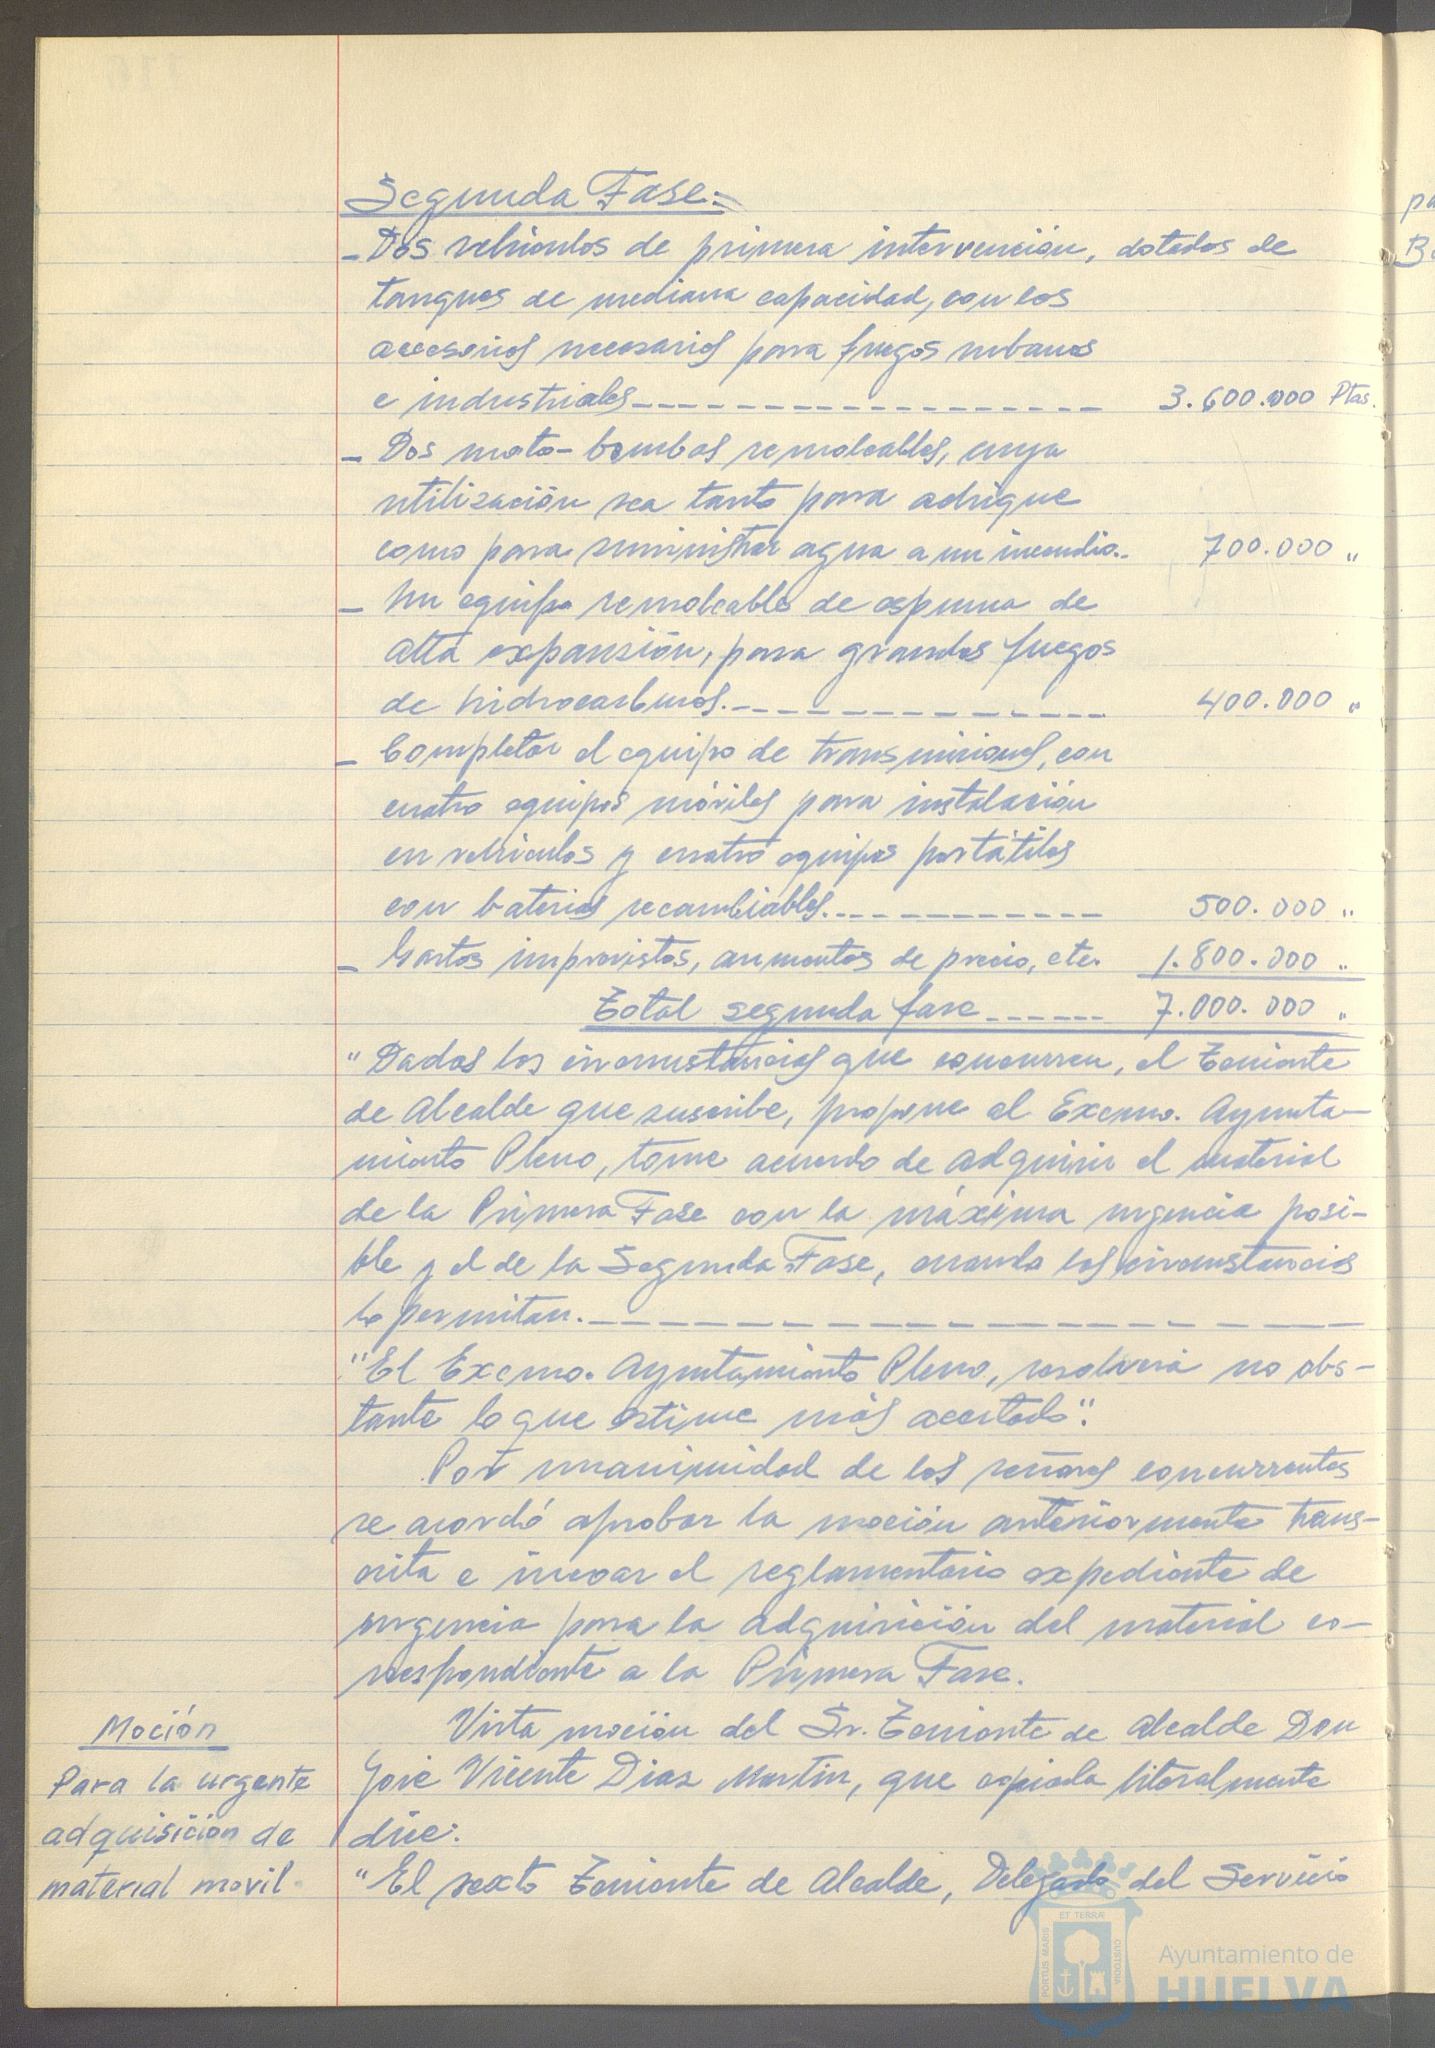 Segunda Fase:=
- Dos vehículos de primera intervención, dotados de
tanques de mediana capacidad, con los
accesorios necesarios para fuegos urbanos
e industriales------------------ 3.600.000 Ptas.
- Dos moto-bombas remolcables, cuya
utilización sea tanto para achique
como para suministrar agua a un incendio.- 700.000 "
- Un equipo remolcable de espuma de
alta expansión, para grandes fuegos
de hidrocarburos.-------------- 400.000 "
- Completar el equipo de transmisiones, con
cuatro equipos móviles para instalación
en vehículos y cuatro equipos portátiles
con baterias recambiables.------------ 500.000 "
- Gastos imprevistos, aumentos de precio, etc. 1.800.000 "
Total segunda fase------ 7.000.000 "
"Dadas las circunstancias que concurren, el Teniente
de Alcalde que suscribe, propone al Excmo. Ayunta-
miento Pleno, tome acuerdo de adquirir el material
de la Primera Fase con la máxima urgencia posi-
ble y el de la Segunda Fase, cuando las circunstancias
lo permitan.----------------
"El Excmo. Ayuntamiento Pleno, resolverá no obs-
tante lo que estime más acertado".
Por unanimidad de los señores concurrentes
se acordó aprobar la moción anteriormente trans-
crita e incoar el reglamentario expediente de
urgencia para la adquisición del material co-
rrespondiente a la Primera Fase.
Moción
Para la urgente
adquisición de
material movil.
Vista moción del Sr. Teniente de Alcalde Don
José Vicente Diaz Martin, que copiada literalmente
dice:
"El sexto Teniente de Alcalde, Delegado del Servicio
pa
B
ET TERRÆ
PORTUS MARIS
CUSTODIA
Ayuntamiento de
HUELVA